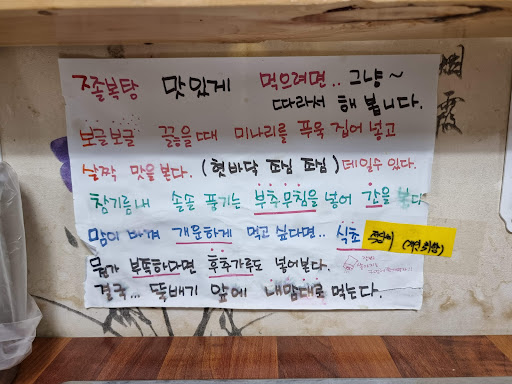 자졸복탕 맛있게 먹으려면.. 그냥~
따라서 해 봅니다.
보글보글 끓을때 미나리를 푸욱 집어 넣고
살짝 맛을 본다. (혓바닥 조심 조심) 데일수 있다.
참기름내 솔솔 풍기는 부추무침을 넣어 간을 본다
맘이 바껴 개운하게 먹고 싶다면.. 식초
뭔가 부족하다면 후추가루도 넣어본다.
결국... 뚝배기 앞에 내맘대로 먹는다.
霞